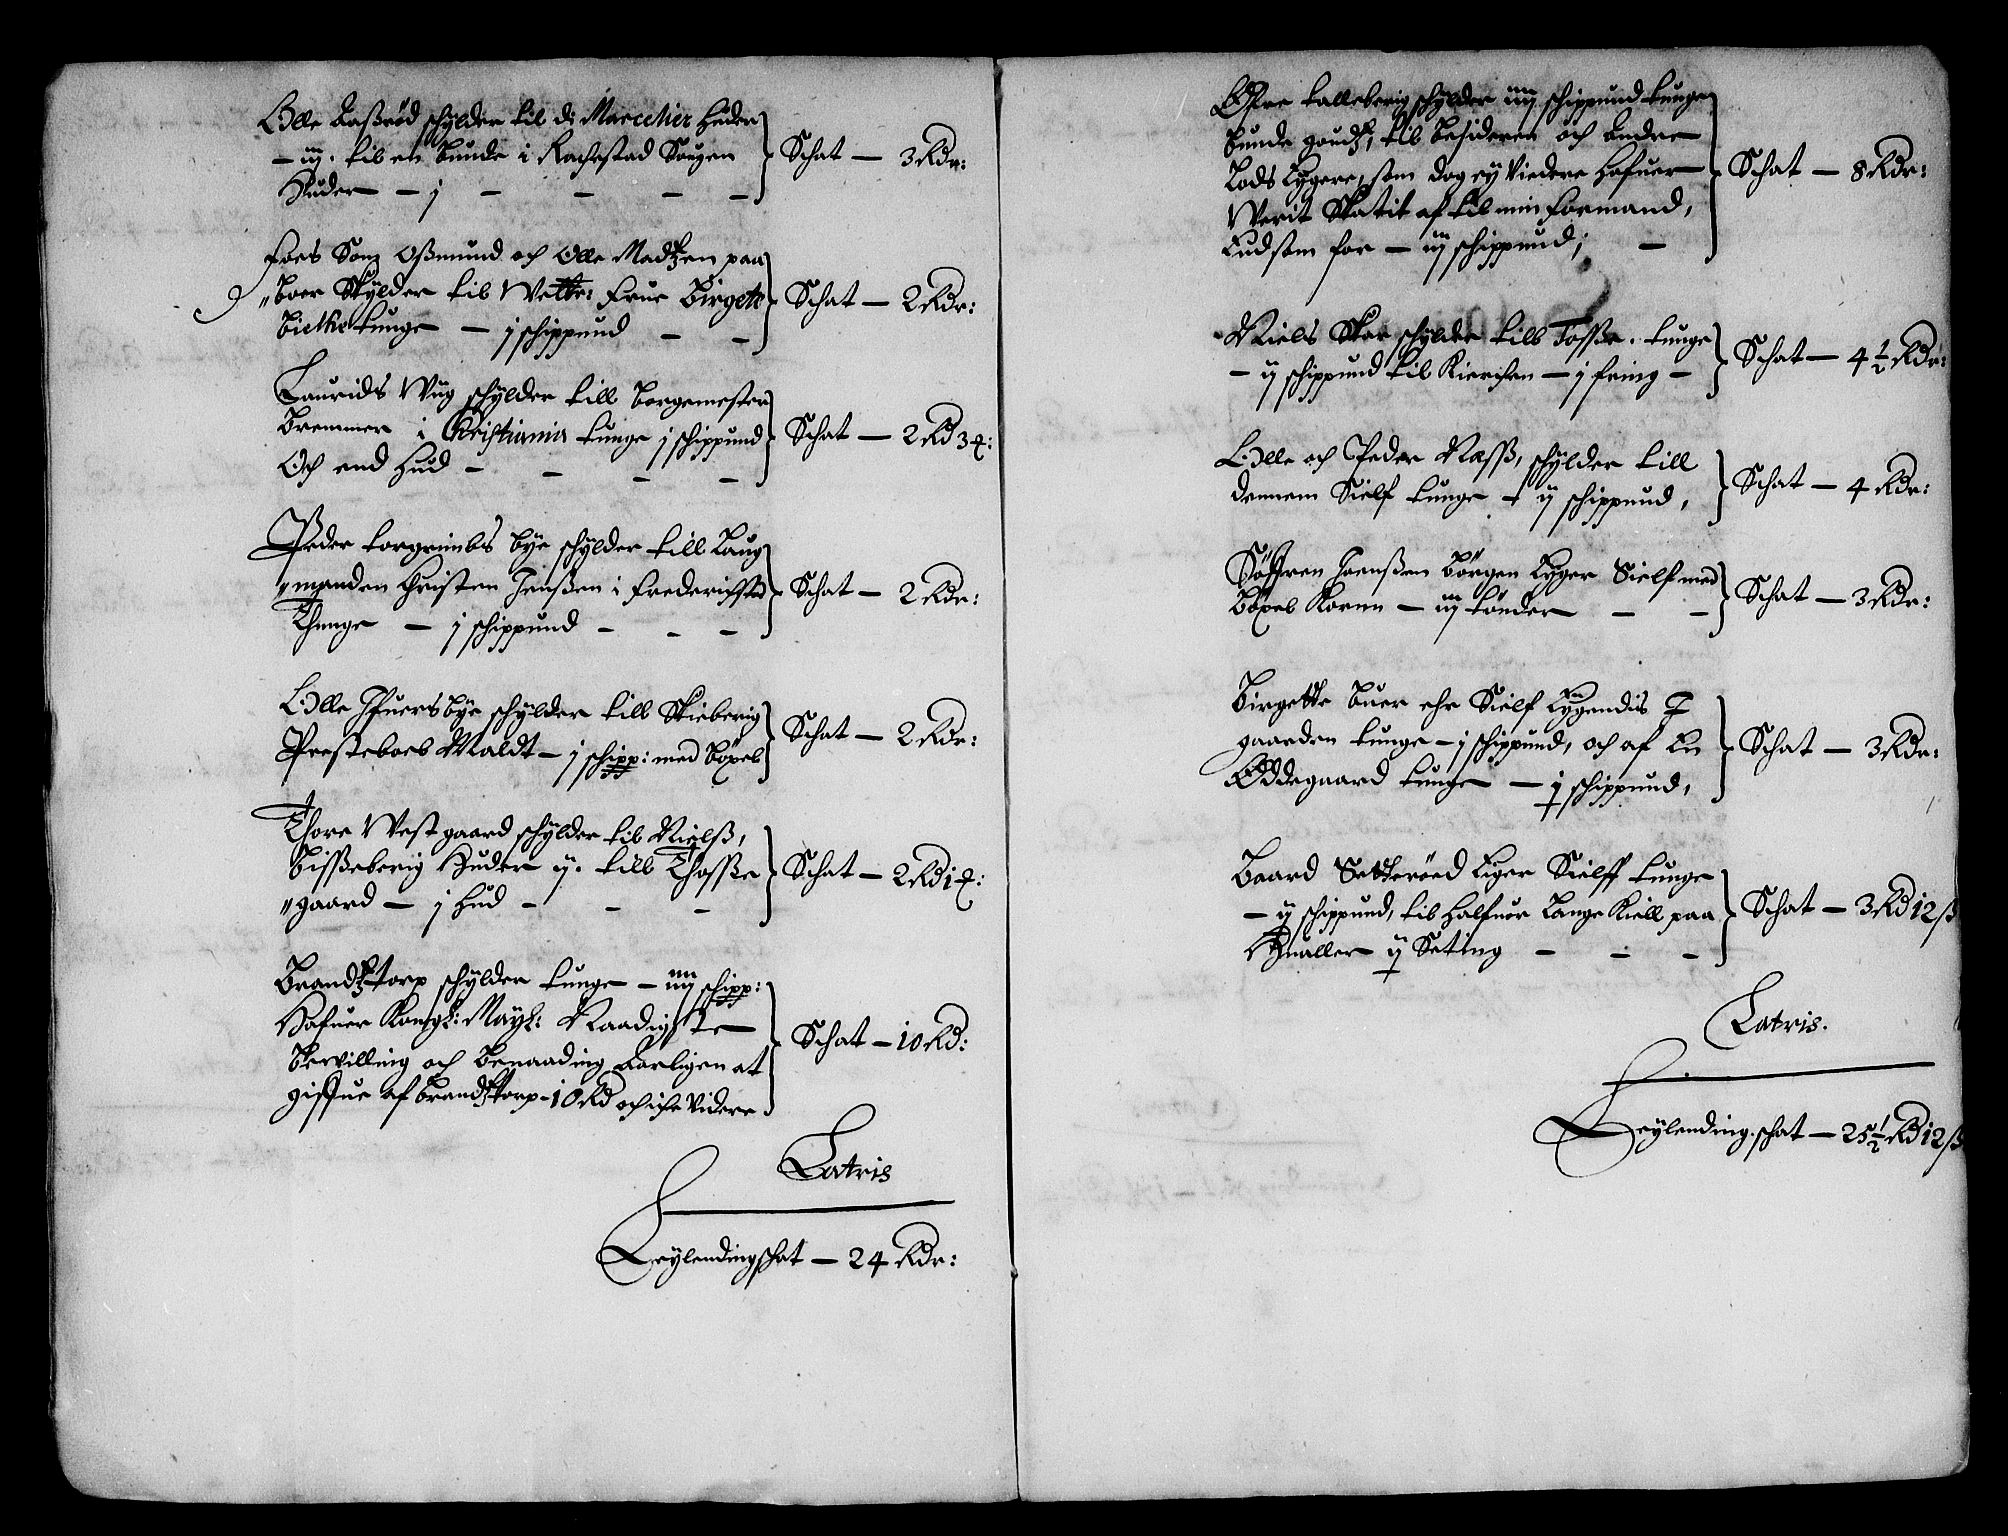 Olle Aaßrød schylder til di Marcelier huder
– iij. til en bunde i Rachestad Sougen
Huder – j – – – –
Schat – 3 Rdr:
Foes Sønz Oßmund och Olle Madtzen paa
Boer Skylder til Wette: Frue Birgete
Bielke tunge – j schippund – –
Schat – 2 Rdr:
Laurids Wüg schylder till borgemester
Bremmer i Christiania tunge j schippund
Och end hud – – – –
Schat – 2 Rd 3 q:
Peder torgrimbs bÿe schylder till Laug
manden Christen Jenßen i Frederichstad
Thunge – j schippund – – –
Schat – 2 Rdr:
Olle Ifuers bÿe schylder till Skieberig
Presteboel Maldt – j schipp: med bøxel
Schat – 2 Rdr:
Thore Westgaard schylder til Nielß,
Bißeberig Huder ij. till Thoße
gaard – j hud – – –
Schat – 2 Rd 1 q:
Brandtztorp schylder tunge – iiij schipp:
Hafuer Kongl: Mayt: Naadigste
Bevilling och Benaading Aarligen at
giffue af Brandtztorp – 10 Rd och iche videre
Schat – 10 Rd:
Latris
Leylendingschat – 24 Rdr:
Øfre talleberig schylder iiij schippund tunge
bunde goudtz, til besideren och andre
Lods Eygere, som dog ey Viedere hafuer
Werit Skatit af til min formand,
End som for – iij schippund; –
Schat – 8 Rdr:
Niels Skor schylder till Toße. tunge
– ij schippund til Kierchen – j fring –
Schat – 4 ½ Rdr:
Olle och Peder Naß, schylder till
dennem Sielf tunge – ij schippund,
Schat – 4 Rdr:
Søffren Joenßen børgen Eyger Sielf med
bøxel Kornn – iij tønder – –
Schat – 3 Rdr:
Birgette buer ehr Sielf Eygendis I
gaarden tunge – j schippund, och af En
Øddegaard tunge – j schippund,
Schat – 3 Rdr:
Baard Setterøed Eiger Sielff tunge
– ij schippund, til halfuor Lange Kiell paa
Hualler ij Seting – – –
Schat – 3 Rd 12 ß
Latris.
Leylending schat – 25 ½ Rd 12 ß